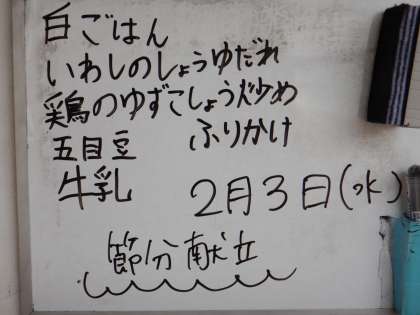 白ごはん
いわしのしょうゆだれ
鶏のゆずこしょう炒め
五目豆 ふりかけ
牛乳 2月3日(水)
節分献立